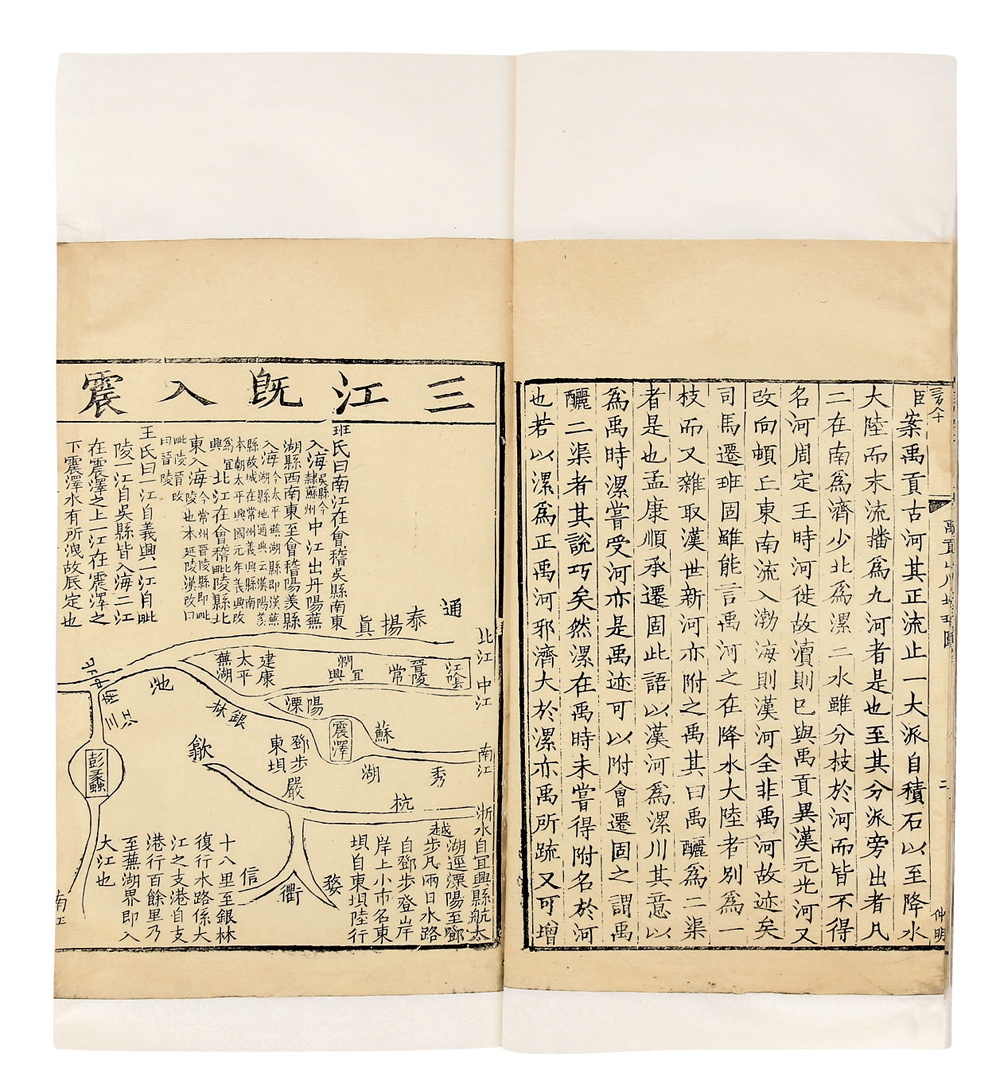 臣案禹貢古河其正流止一大派自積石以至降水
大陸而末流播爲九河者是也至其分派旁出者凡
二在南爲濟少北爲漯二水雖分枝於河而皆不得
名河周定王時河徙故瀆則已與禹貢異漢元光河又
改向頓丘東南流入渤海則漢河全非禹河故迹矣
司馬遷班固雖能言禹河之在降水大陸者別爲一
枝而又雜取漢世新河亦附之禹其曰禹釃爲二渠
者是也孟康順承遷固此語以漢河爲漯川其意以
爲禹時漯嘗受河亦是禹迹可以附會遷固之謂禹
釃二渠者其說巧矣然漯在禹時未嘗得附名於河
也若以漯爲正禹河邪濟大於漯亦禹所疏又可增
禹貢山川
二
仲明
三江既入震
班氏曰南江在會稽吳縣南東
入海吳縣今隸蘇州中江出丹陽蕪
湖縣西南東至會稽陽羨縣
入海今太平蕪湖縣即漢蕪湖縣地通典云漢陽羨
縣故城在常州義興縣南本朝太平興國元年義興改爲宜興北江在會稽毗陵縣北
東入海今常州晉陵縣即毗陵也本延陵漢改曰毗陵晉改曰晉陵
王氏曰一江自義興一江自毗
陵一江自吳縣皆入海二江
在震澤之上一江在震澤之
下震澤水有所洩故厎定也
通
泰
揚
眞
北江
中江
南江
浙水
江陰
晉陵
常
宜興
潤
建康
太平
蕪湖
池
溧陽
銀林
震澤
蘇
湖
秀
鄧步
東垻
嚴
歙
杭
越
婺
衢
信
江
三
彭蠡
南江
自宜興縣航太
湖逕溧陽至鄧
步凡兩日水路
自鄧步登岸
岸上小市名東
垻自東垻陸行
十八里至銀林
復行水路係大
江之支港自支
港行百餘里乃
至蕪湖界即入
大江也